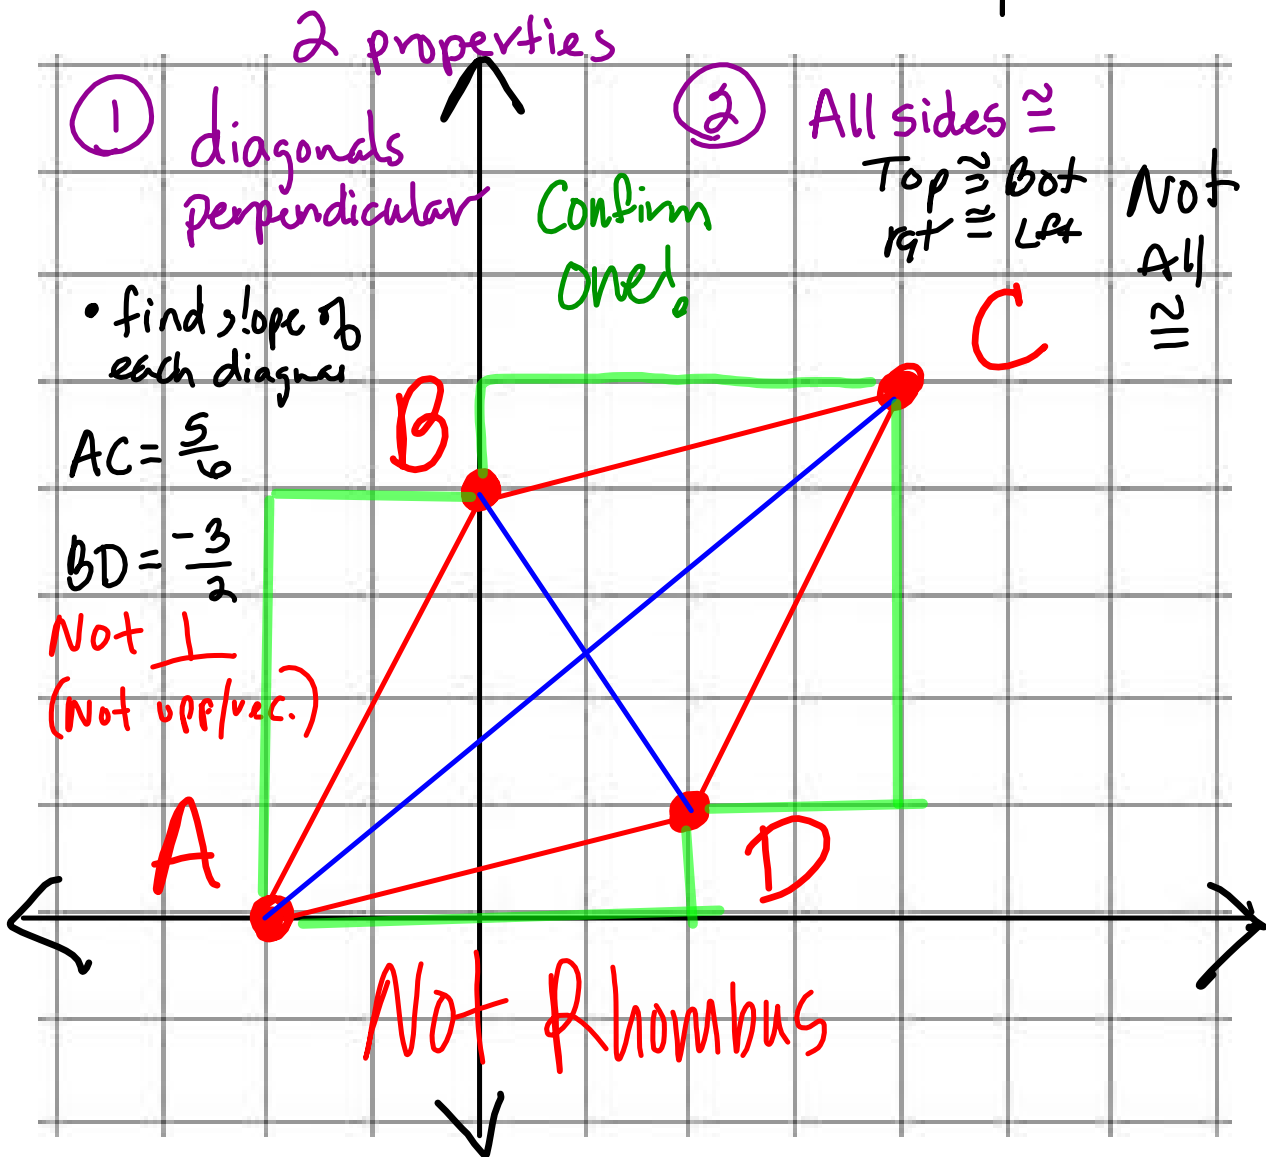 2 properties
① diagonals
perpendicular
② All sides ≅
Top ≅ Bot
rgt ≅ Lft
Not
All
≅
Confirm
one!
• find slope of
each diagnal
AC = 5/6
BD = -3/2
Not ⊥
(Not opp/rec.)
A
B
C
D
Not Rhombus